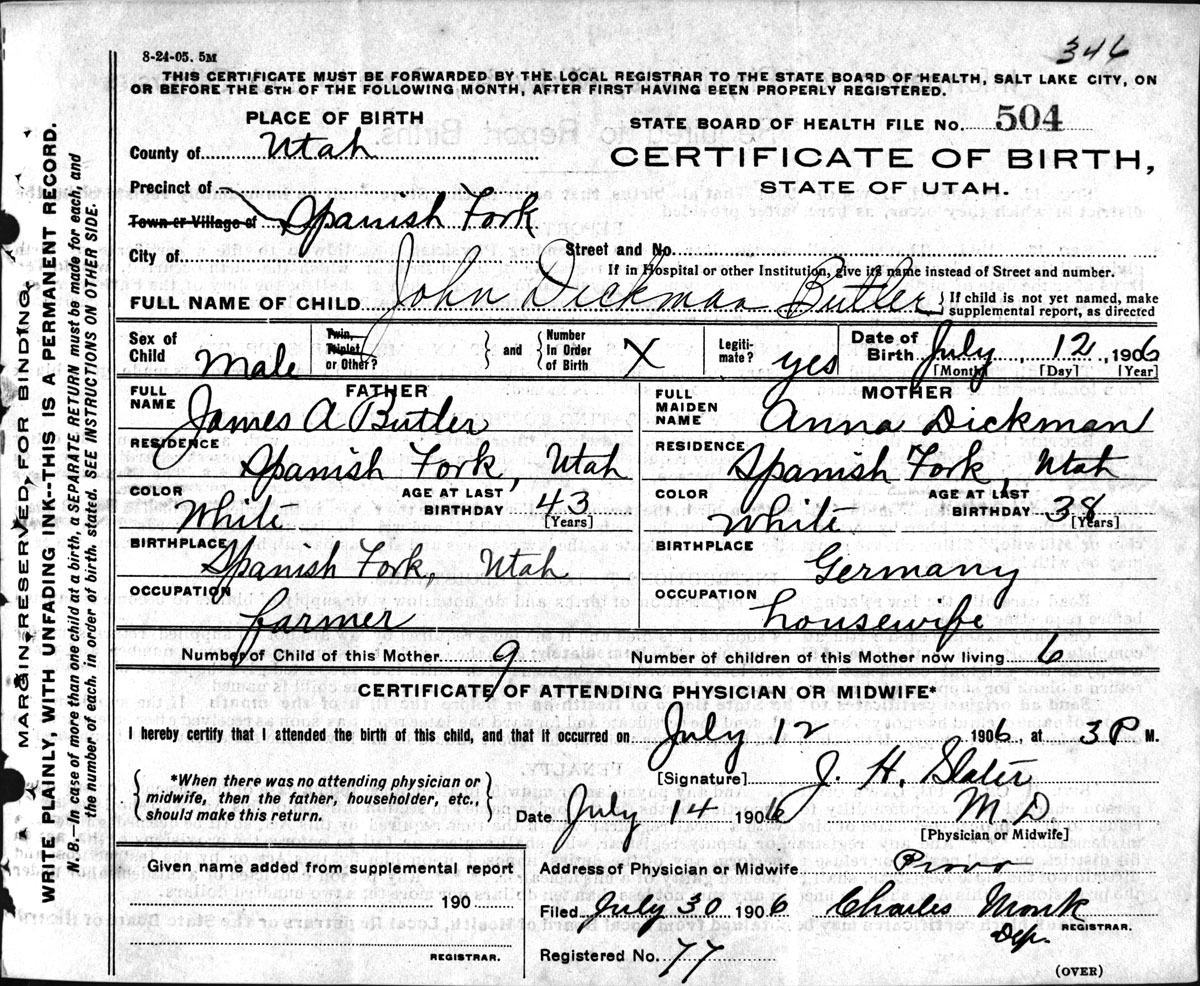 346
8-24-05. 5M
THIS CERTIFICATE MUST BE FORWARDED BY THE LOCAL REGISTRAR TO THE STATE BOARD OF HEALTH, SALT LAKE CITY, ON
OR BEFORE THE 5TH OF THE FOLLOWING MONTH, AFTER FIRST HAVING BEEN PROPERLY REGISTERED.
PLACE OF BIRTH
STATE BOARD OF HEALTH FILE No. 504
County of Utah
CERTIFICATE OF BIRTH,
STATE OF UTAH.
Precinct of
Town or Village of Spanish Fork
City of Street and No.
If in Hospital or other Institution, give its name instead of Street and number.
FULL NAME OF CHILD John Dickman Butler } If child is not yet named, make supplemental report, as directed
Sex of Child Male Twin, Triplet or Other? } and { Number In Order of Birth X Legiti-mate? yes Date of Birth July, 12, 1906
[Month] [Day] [Year]
FATHER
FULL NAME James A Butler
RESIDENCE Spanish Fork, Utah
COLOR White AGE AT LAST BIRTHDAY 43 [Years]
BIRTHPLACE Spanish Fork, Utah
OCCUPATION farmer
MOTHER
FULL MAIDEN NAME Anna Dickman
RESIDENCE Spanish Fork, Utah
COLOR White AGE AT LAST BIRTHDAY 38 [Years]
BIRTHPLACE Germany
OCCUPATION housewife
Number of Child of this Mother 9 Number of children of this Mother now living 6
CERTIFICATE OF ATTENDING PHYSICIAN OR MIDWIFE*
I hereby certify that I attended the birth of this child, and that it occurred on July 12 1906, at 3 P M.
{ *When there was no attending physician or midwife, then the father, householder, etc., should make this return. }
[Signature] J. H. Slater
Date July 14 1906 M.D.
[Physician or Midwife]
Given name added from supplemental report
190
REGISTRAR.
Address of Physician or Midwife Provo
Filed July 30 1906 Charles Monk
Dep. REGISTRAR.
Registered No. 77
(OVER)
MARGIN RESERVED FOR BINDING
WRITE PLAINLY, WITH UNFADING INK--THIS IS A PERMANENT RECORD.
N. B.—In case of more than one child at a birth, a SEPARATE RETURN must be made for each, and
the number of each. in order of birth. stated. SEE INSTRUCTIONS ON OTHER SIDE.